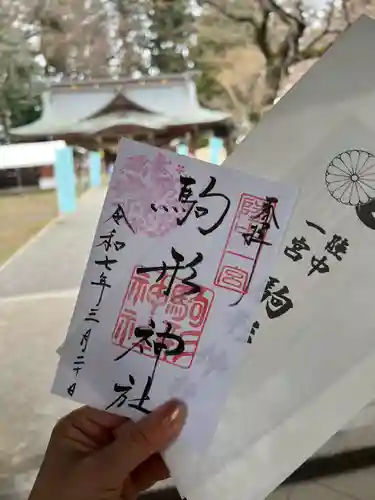 奉拝
陸中一宮
駒形神社
駒形神社
令和七年三月二十日
陸中
一宮
駒形